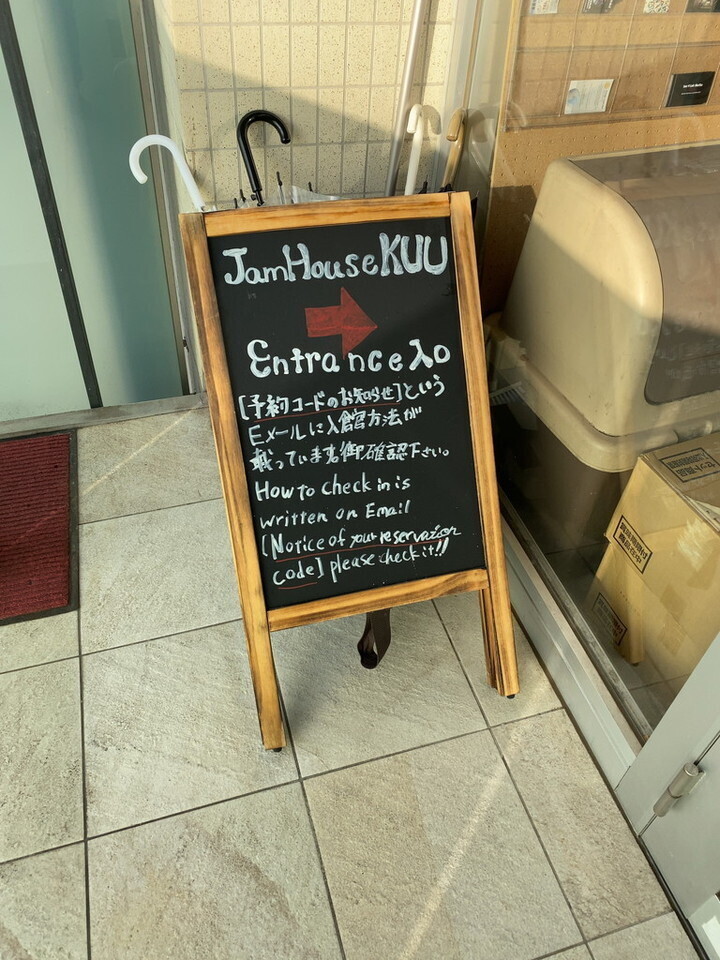 JamHouseKUU
Entrance入口
[予約コードのお知らせ]という
Eメールに入館方法が
載っています。御確認下さい。
How to check in is
written on Email
[Notice of your reservation
code] please check it!!